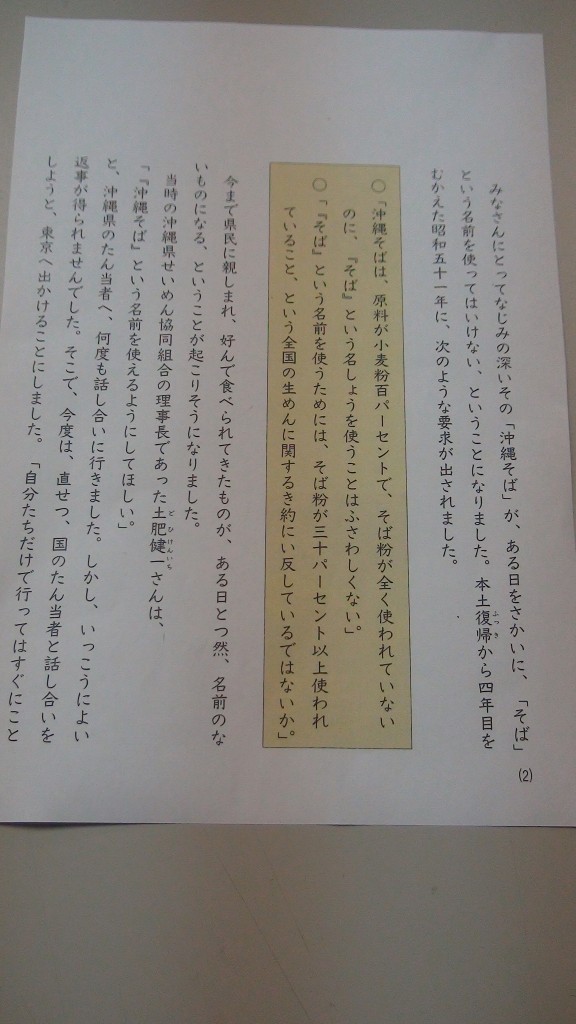 (2)
みなさんにとってなじみの深いその「沖縄そば」が、ある日をさかいに、「そば」
という名前を使ってはいけない、ということになりました。本土復帰から四年目を
むかえた昭和五十一年に、次のような要求が出されました。
○「沖縄そばは、原料が小麦粉百パーセントで、そば粉が全く使われていない
のに、『そば』という名しょうを使うことはふさわしくない。」
○「『そば』という名前を使うためには、そば粉が三十パーセント以上使われ
ていること、という全国の生めんに関するき約にい反しているではないか。」
今まで県民に親しまれ、好んで食べられてきたものが、ある日とつ然、名前のな
いものになる、ということが起こりそうになりました。
当時の沖縄県せいめん協同組合の理事長であった土肥健一さんは、
「『沖縄そば』という名前を使えるようにしてほしい。」
と、沖縄県のたん当者へ、何度も話し合いに行きました。しかし、いっこうによい
返事が得られませんでした。そこで、今度は、直せつ、国のたん当者と話し合いを
しようと、東京へ出かけることにしました。「自分たちだけで行ってはすぐにこと